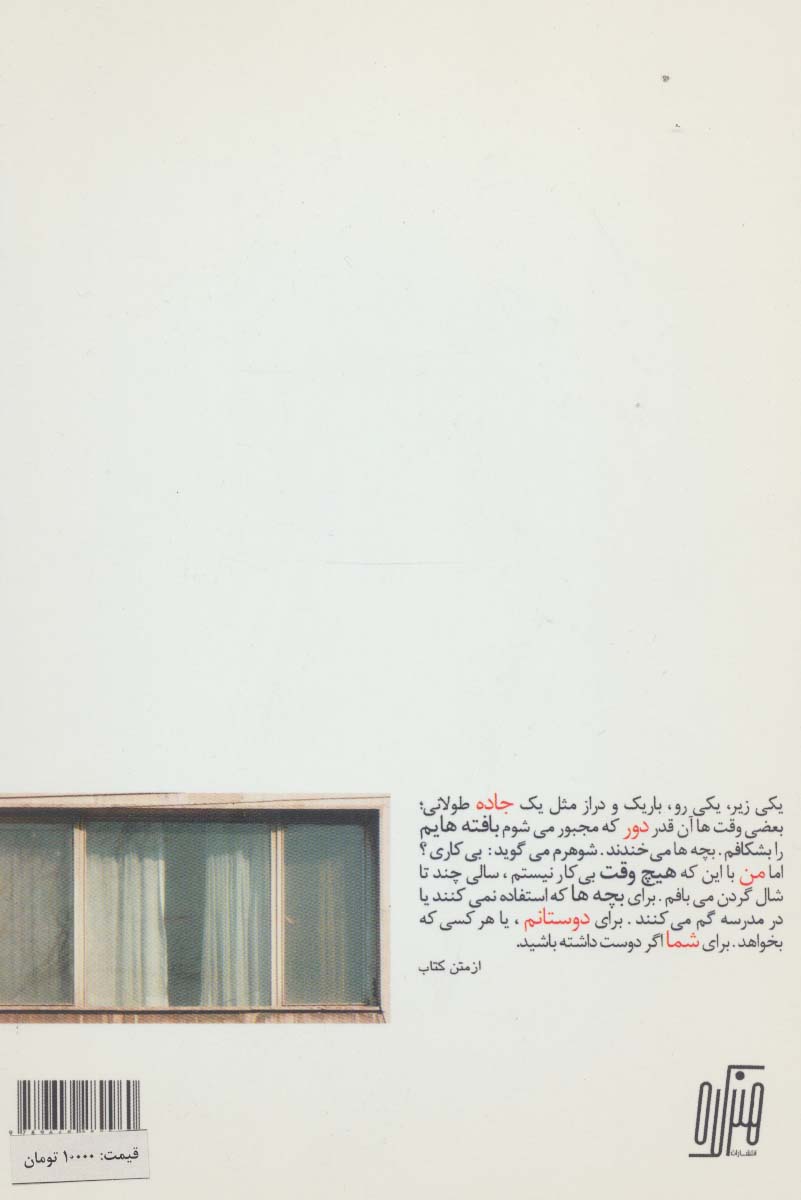 یکی زیر، یکی رو، باریک و دراز مثل یک جاده طولانی؛
بعضی وقت ها آن قدر دور که مجبور می شوم بافته هایم
را بشکافم. بچه ها می‌خندند. شوهرم می گوید: بی کاری؟
اما من با این که هیچ وقت بی‌کار نیستم، سالی چند تا
شال گردن می بافم. برای بچه ها که استفاده نمی کنند یا
در مدرسه گم می کنند. برای دوستانم، یا هر کسی که
بخواهد. برای شما اگر دوست داشته باشید.
از متن کتاب
انتشارات
قیمت: ۱۰۰۰۰ تومان